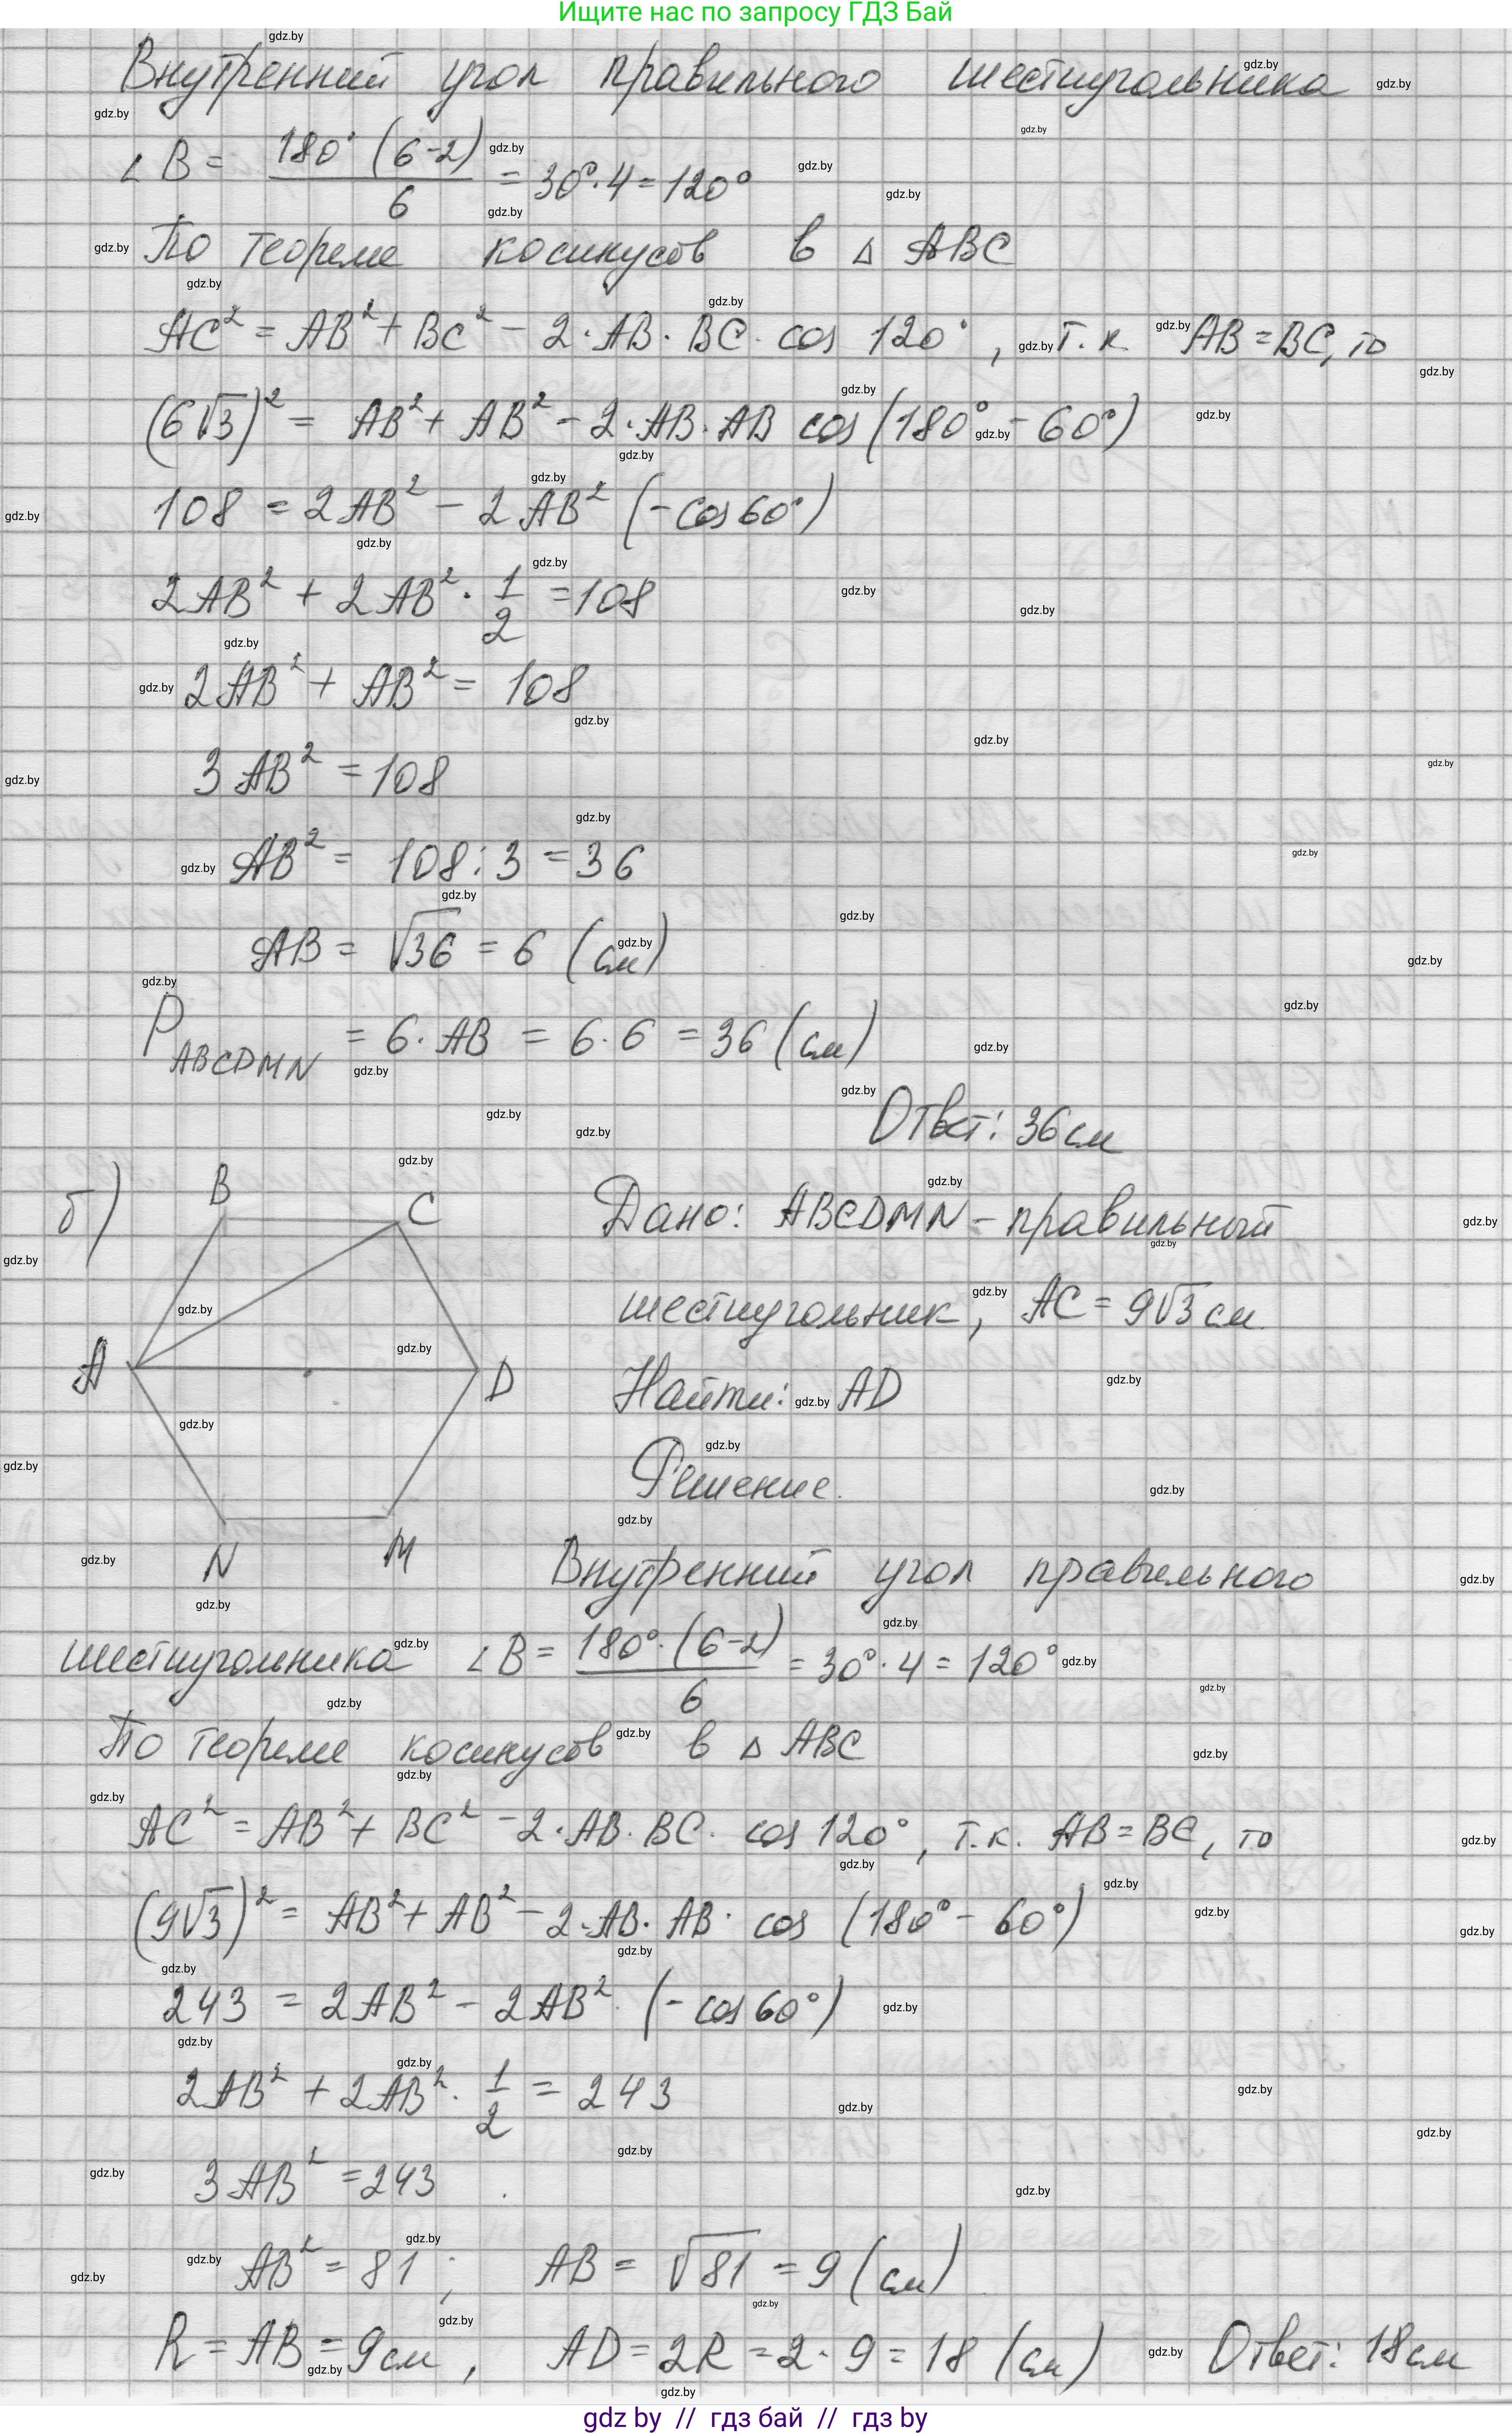 Ищите нас по запросу ГДЗ Бай
Внутренний угол правильного шестиугольника
∠B = 180° (6-2) / 6 = 30°·4 = 120°
По теореме косинусов в △ ABC
AC² = AB² + BC² - 2·AB·BC·cos 120°, т.к. AB = BC, то
(6√3)² = AB² + AB² - 2·AB·AB cos (180° - 60°)
108 = 2AB² - 2AB² (-cos 60°)
2AB² + 2AB² · 1/2 = 108
2AB² + AB² = 108
3AB² = 108
AB² = 108 : 3 = 36
AB = √36 = 6 (см)
P ABCDMN = 6·AB = 6·6 = 36 (см)
Ответ: 36 см
б)
B
C
A
D
N
M
Дано: ABCDMN - правильный
шестиугольник, AC = 9√3 см
Найти: AD
Решение.
Внутренний угол правильного
шестиугольника ∠B = 180°·(6-2) / 6 = 30°·4 = 120°
По теореме косинусов в △ ABC
AC² = AB² + BC² - 2·AB·BC·cos 120°, т.к. AB = BC, то
(9√3)² = AB² + AB² - 2·AB·AB·cos (180° - 60°)
243 = 2AB² - 2AB²·(-cos 60°)
2AB² + 2AB² · 1/2 = 243
3AB² = 243
AB² = 81; AB = √81 = 9 (см)
R = AB = 9 см, AD = 2R = 2·9 = 18 (см) Ответ: 18 см
gdz by // гдз бай // гдз by